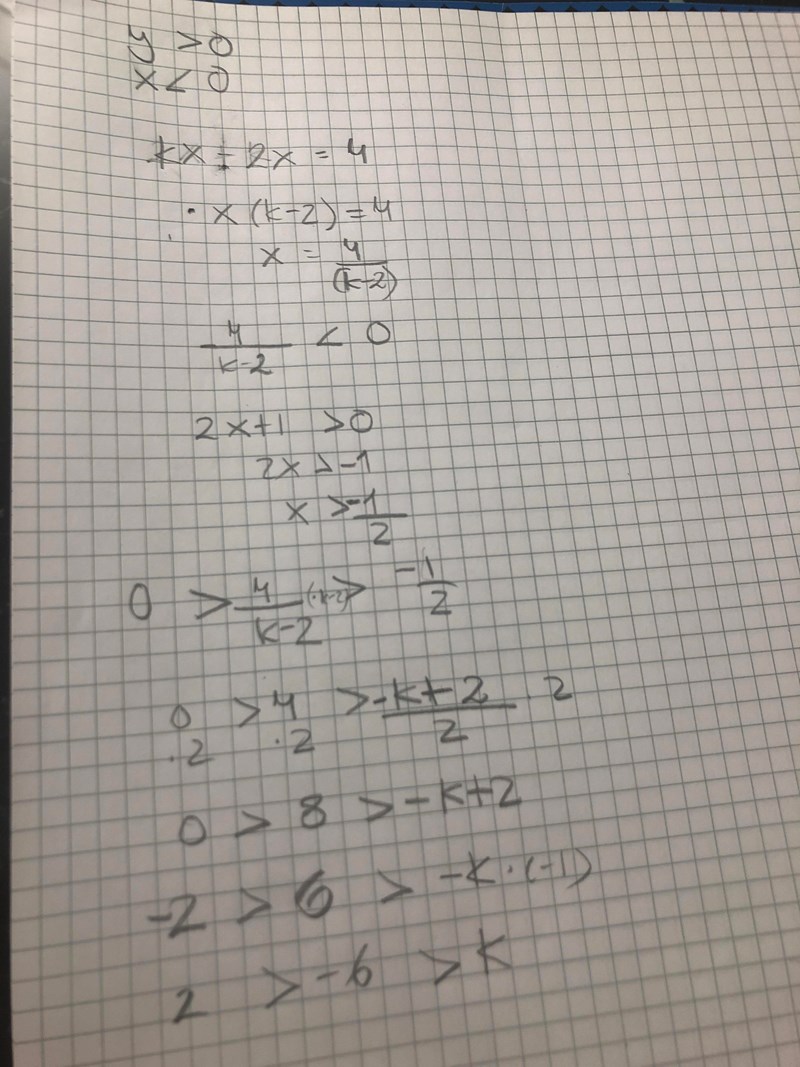 y > 0
x < 0
kx - 2x = 4
· x (k-2) = 4
x = 4/(k-2)
4/(k-2) < 0
2x+1 > 0
2x > -1
x > -1/2
0 > 4/(k-2) (·k-2) > -1/2
0 > 4 > -k+2/2 · 2
·2 ·2
0 > 8 > -k+2
-2 > 6 > -k · (-1)
2 > -6 > k